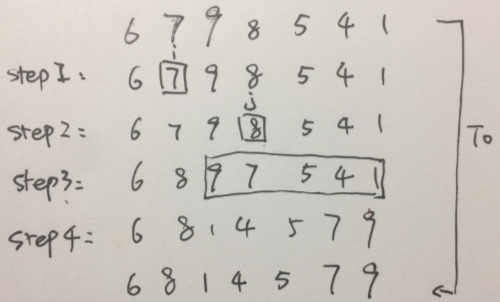 6 7 9 8 5 4 1
i
step1: 6 7 9 8 5 4 1
j
step2: 6 7 9 8 5 4 1
To
step3: 6 8 9 7 5 4 1
step4: 6 8 1 4 5 7 9
6 8 1 4 5 7 9